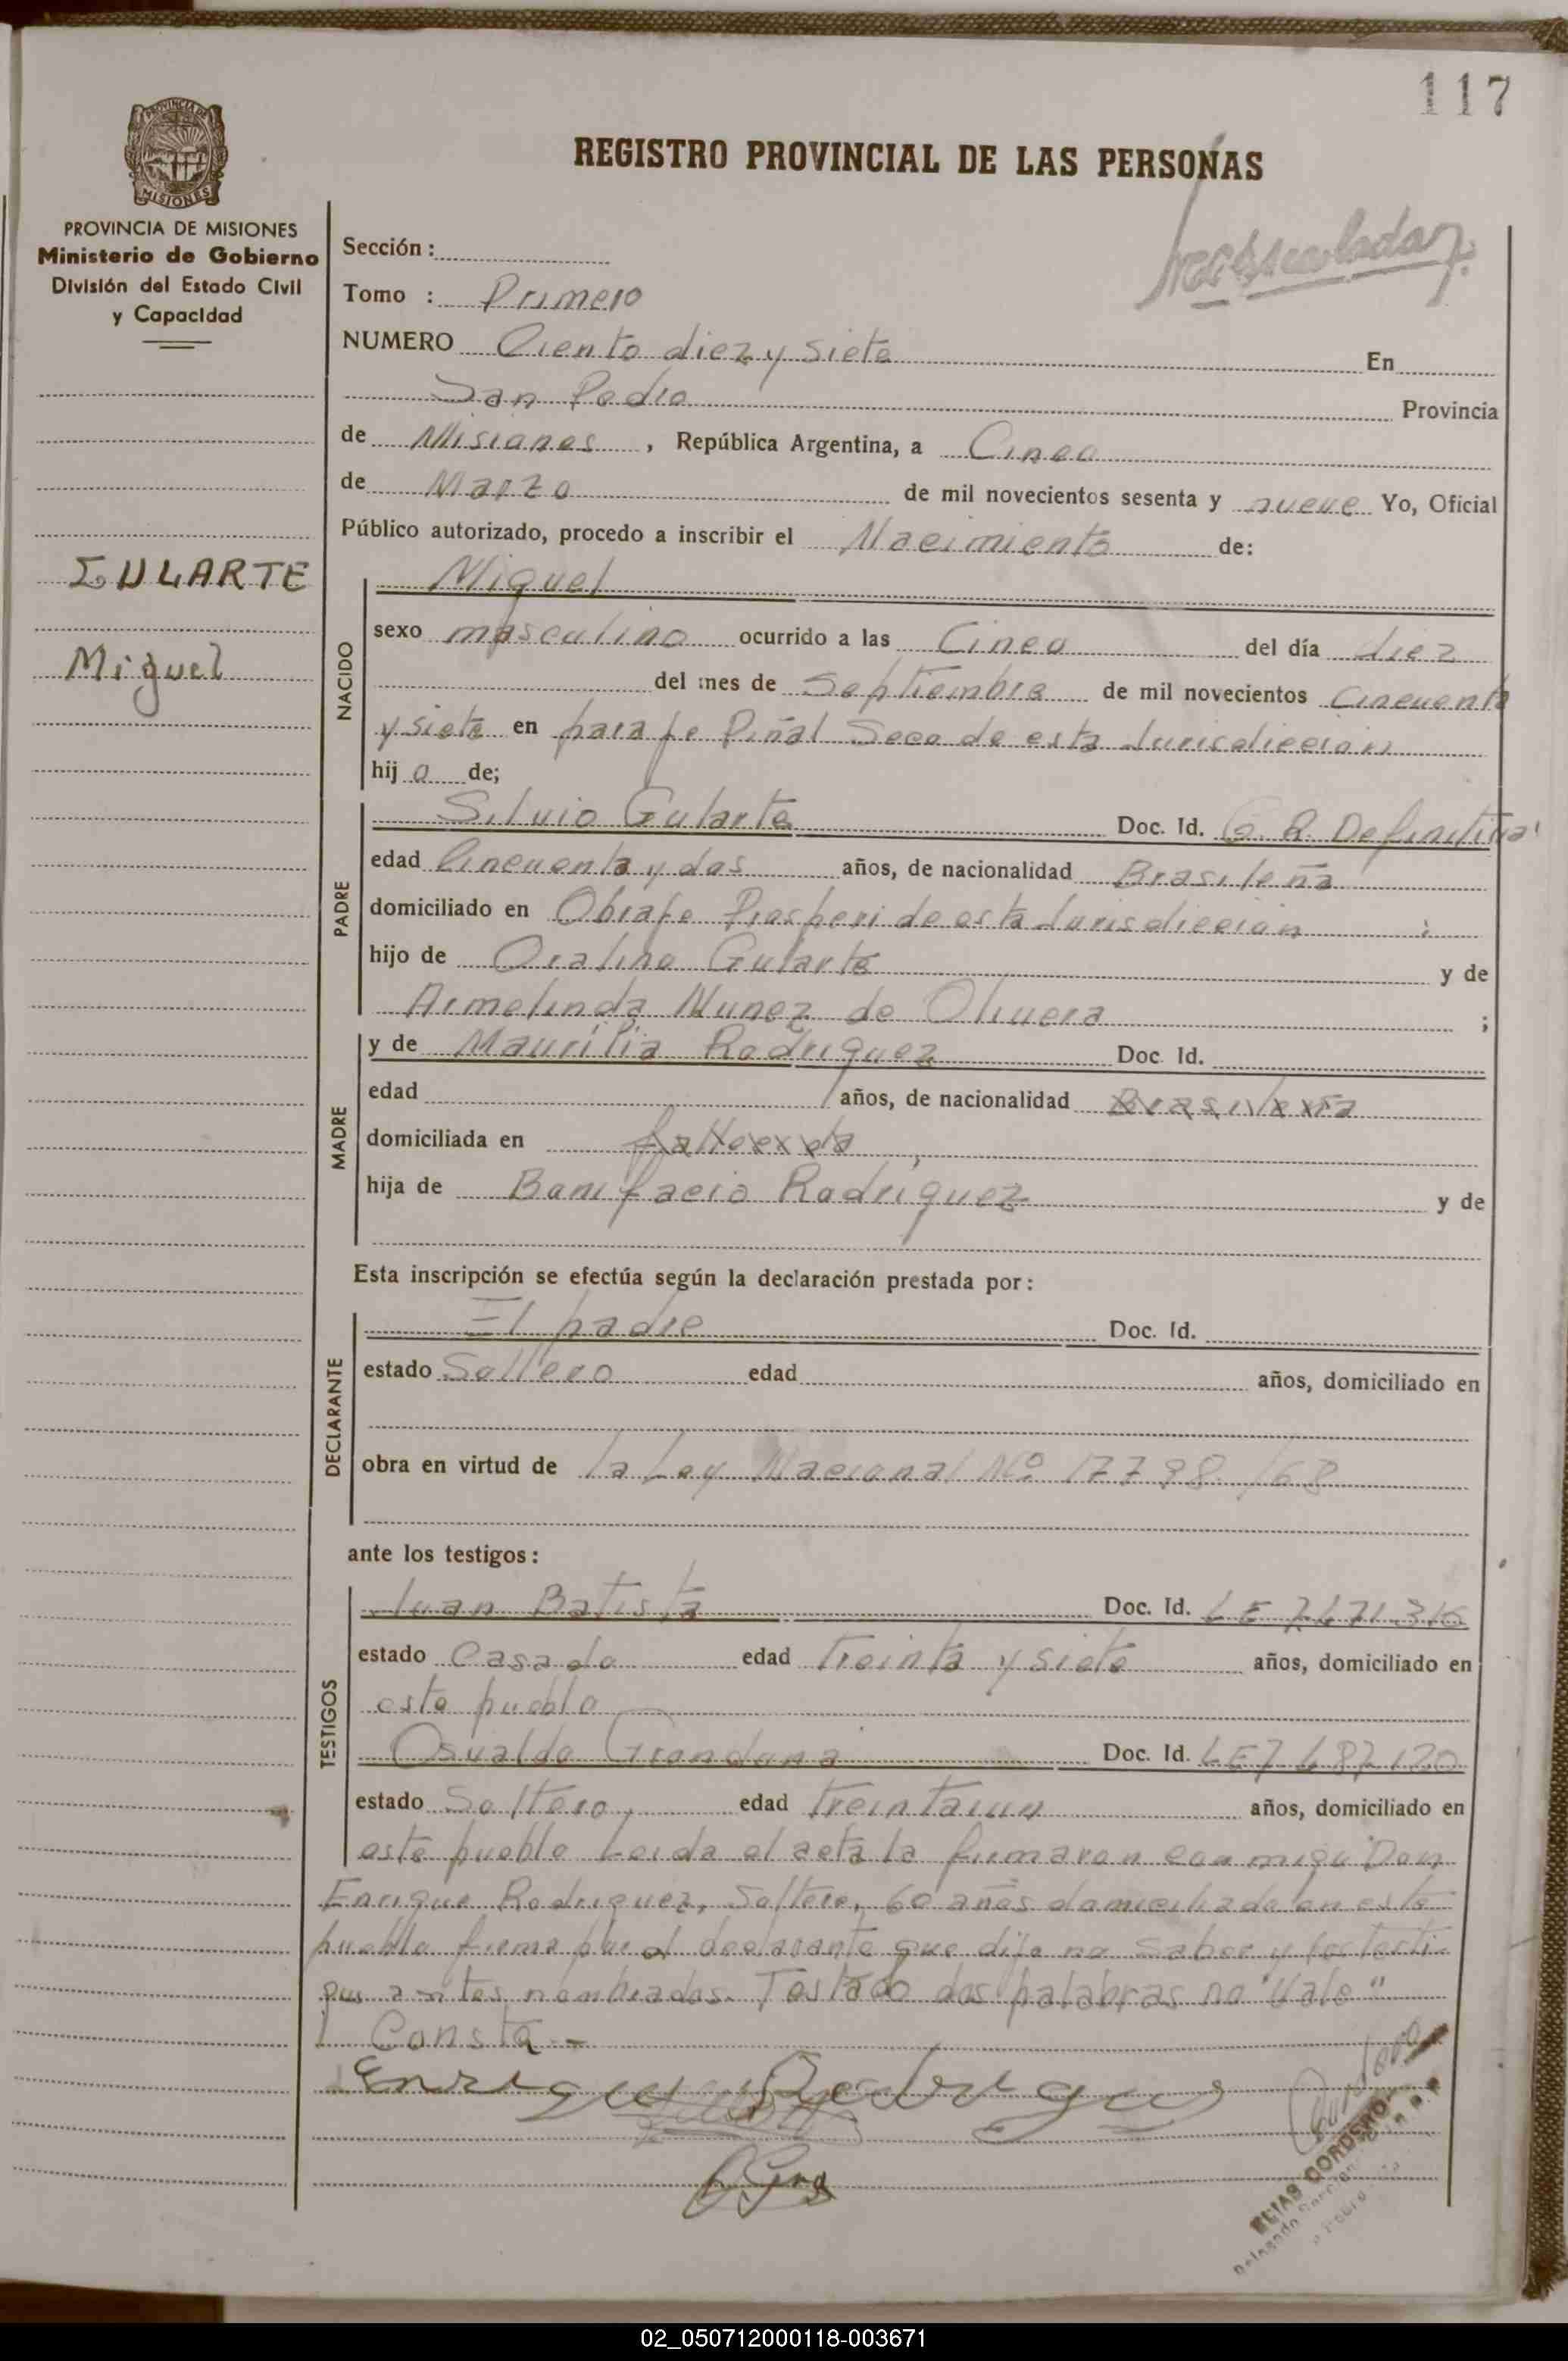 117
REGISTRO PROVINCIAL DE LAS PERSONAS
PROVINCIA DE MISIONES
Ministerio de Gobierno
División del Estado Civil
y Capacidad
Sección :
Tomo : Primero
NUMERO Ciento diez y siete En
San Pedro Provincia
de Misiones , República Argentina, a Cinco
de Marzo de mil novecientos sesenta y nueve Yo, Oficial
Público autorizado, procedo a inscribir el Nacimiento de:
GULARTE
Miguel
NACIDO
Miguel
sexo masculino ocurrido a las Cinco del día diez
del mes de Septiembre de mil novecientos cincuenta
y siete en paraje Piñal Seco de esta Jurisdiccion
hij o de;
PADRE
Silvio Gularte Doc. Id. C. R. Definitiva
edad Cincuenta y dos años, de nacionalidad Brasileña
domiciliado en Obraje Prosperi de esta Jurisdiccion ;
hijo de Oralino Gularte y de
Armelinda Nunez de Olivera ;
MADRE
y de Maurilia Rodriguez Doc Id.
edad años, de nacionalidad Brasileña
domiciliada en
hija de Bonifacio Rodriguez y de
Esta inscripción se efectúa según la declaración prestada por:
DECLARANTE
El padre Doc. Id.
estado Soltero edad años, domiciliado en
obra en virtud de la Ley Nacional Nº 17798/68
ante los testigos:
TESTIGOS
Juan Batista Doc. Id. LE
estado Casado edad Treinta y siete años, domiciliado en
este pueblo
Osvaldo Grondona Doc. Id. LE
estado Soltero, edad Treintaiun años, domiciliado en
este pueblo Leida el acta la firmaron conmigo Don
Enrique Rodriguez, Soltero, 60 años domiciliado en este
pueblo firma por el declarante que dijo no saber y los testi-
gos antes nombrados. Testado dos palabras no "Vale"
Consta.-
Enrique Rodrigues
ELIAS CORDERO
02_050712000118-003671